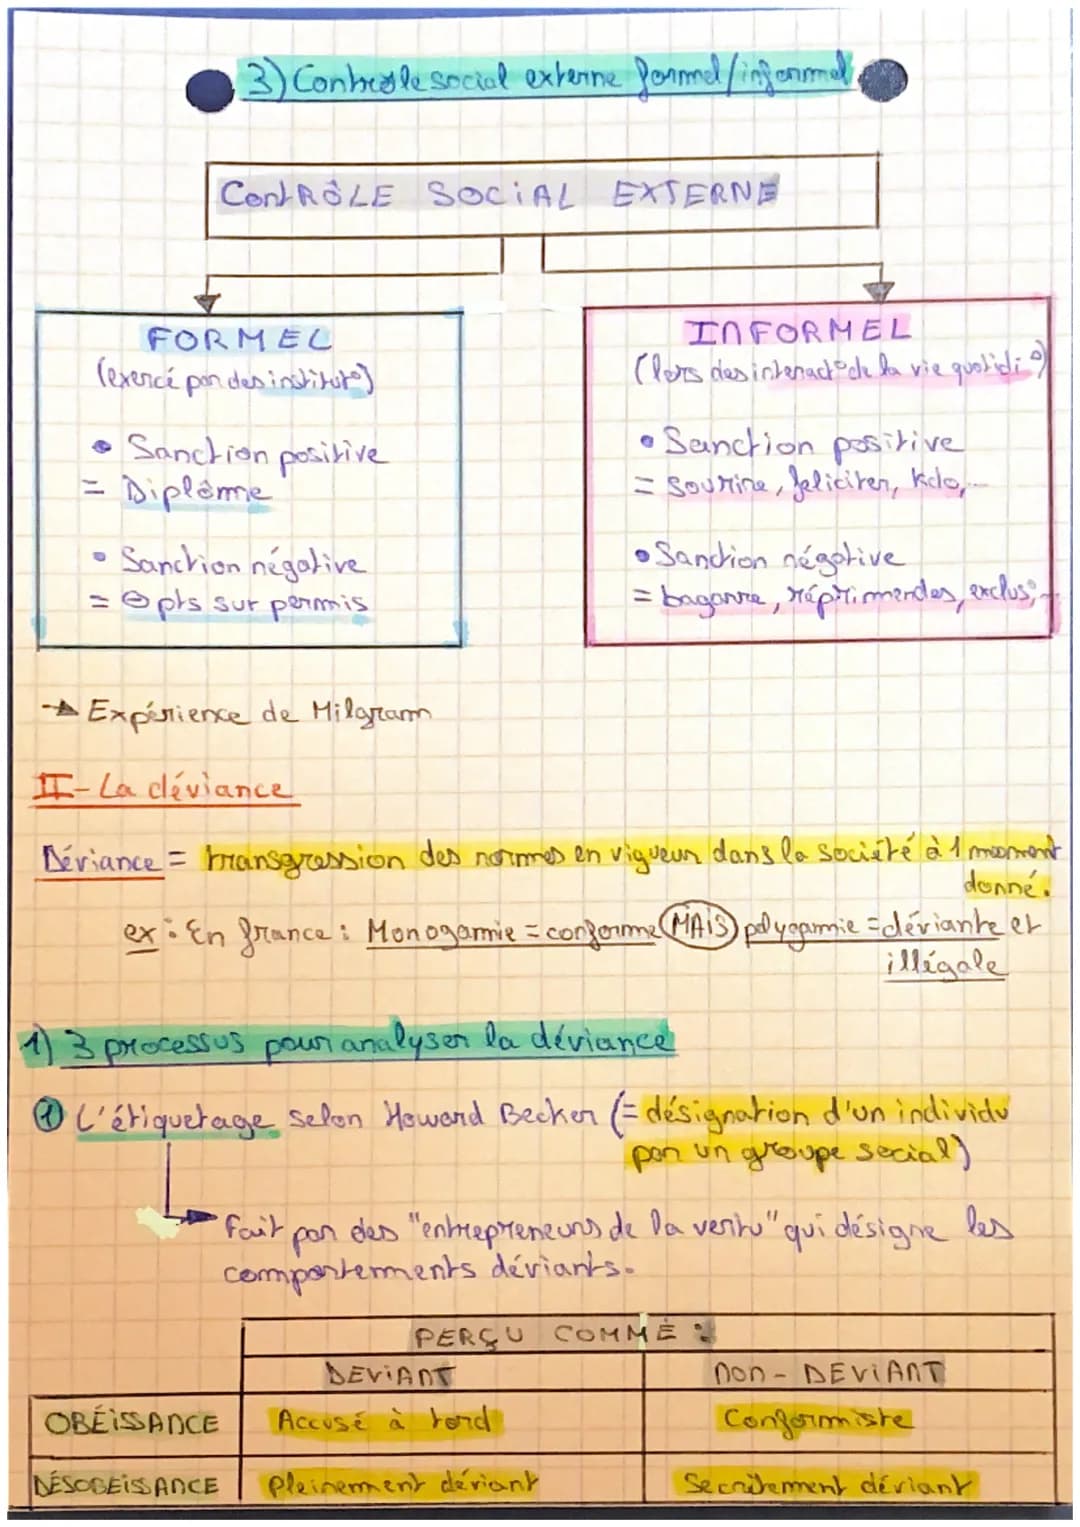 3) Contrôle social externe formel/informel
ContRÔLE SOCiAL EXTERNE
FORMEL
(exercé par des institut°)
• Sanction positive
= Diplôme
• Sanction négative
= ⊖ pts sur permis
INFORMEL
(lors des interact° de la vie quotidi°)
• Sanction positive
= sourire, feliciter, kdo,...
• Sanction négative
= bagarre, réprimendes, exclus°,...
→ Expérience de Milgram
II- La déviance
Déviance = transgression des normes en vigueur dans la société à 1 moment
donné.
ex : En france : Monogamie = conforme MAiS polygamie = déviante et
illégale
1) 3 processus pour analyser la déviance
① L'étiquetage selon Howard Becker (= désignation d'un individu
par un groupe social)
Fait par des "entrepreneurs de la vertu" qui désigne les
comportements déviants.
PERÇU COMME :
DEViANT
NON - DEViANT
OBÉiSSANCE
Accusé à tord
Conformiste
DÉSOBEiSSANCE
Pleinement déviant
Secrètement déviant